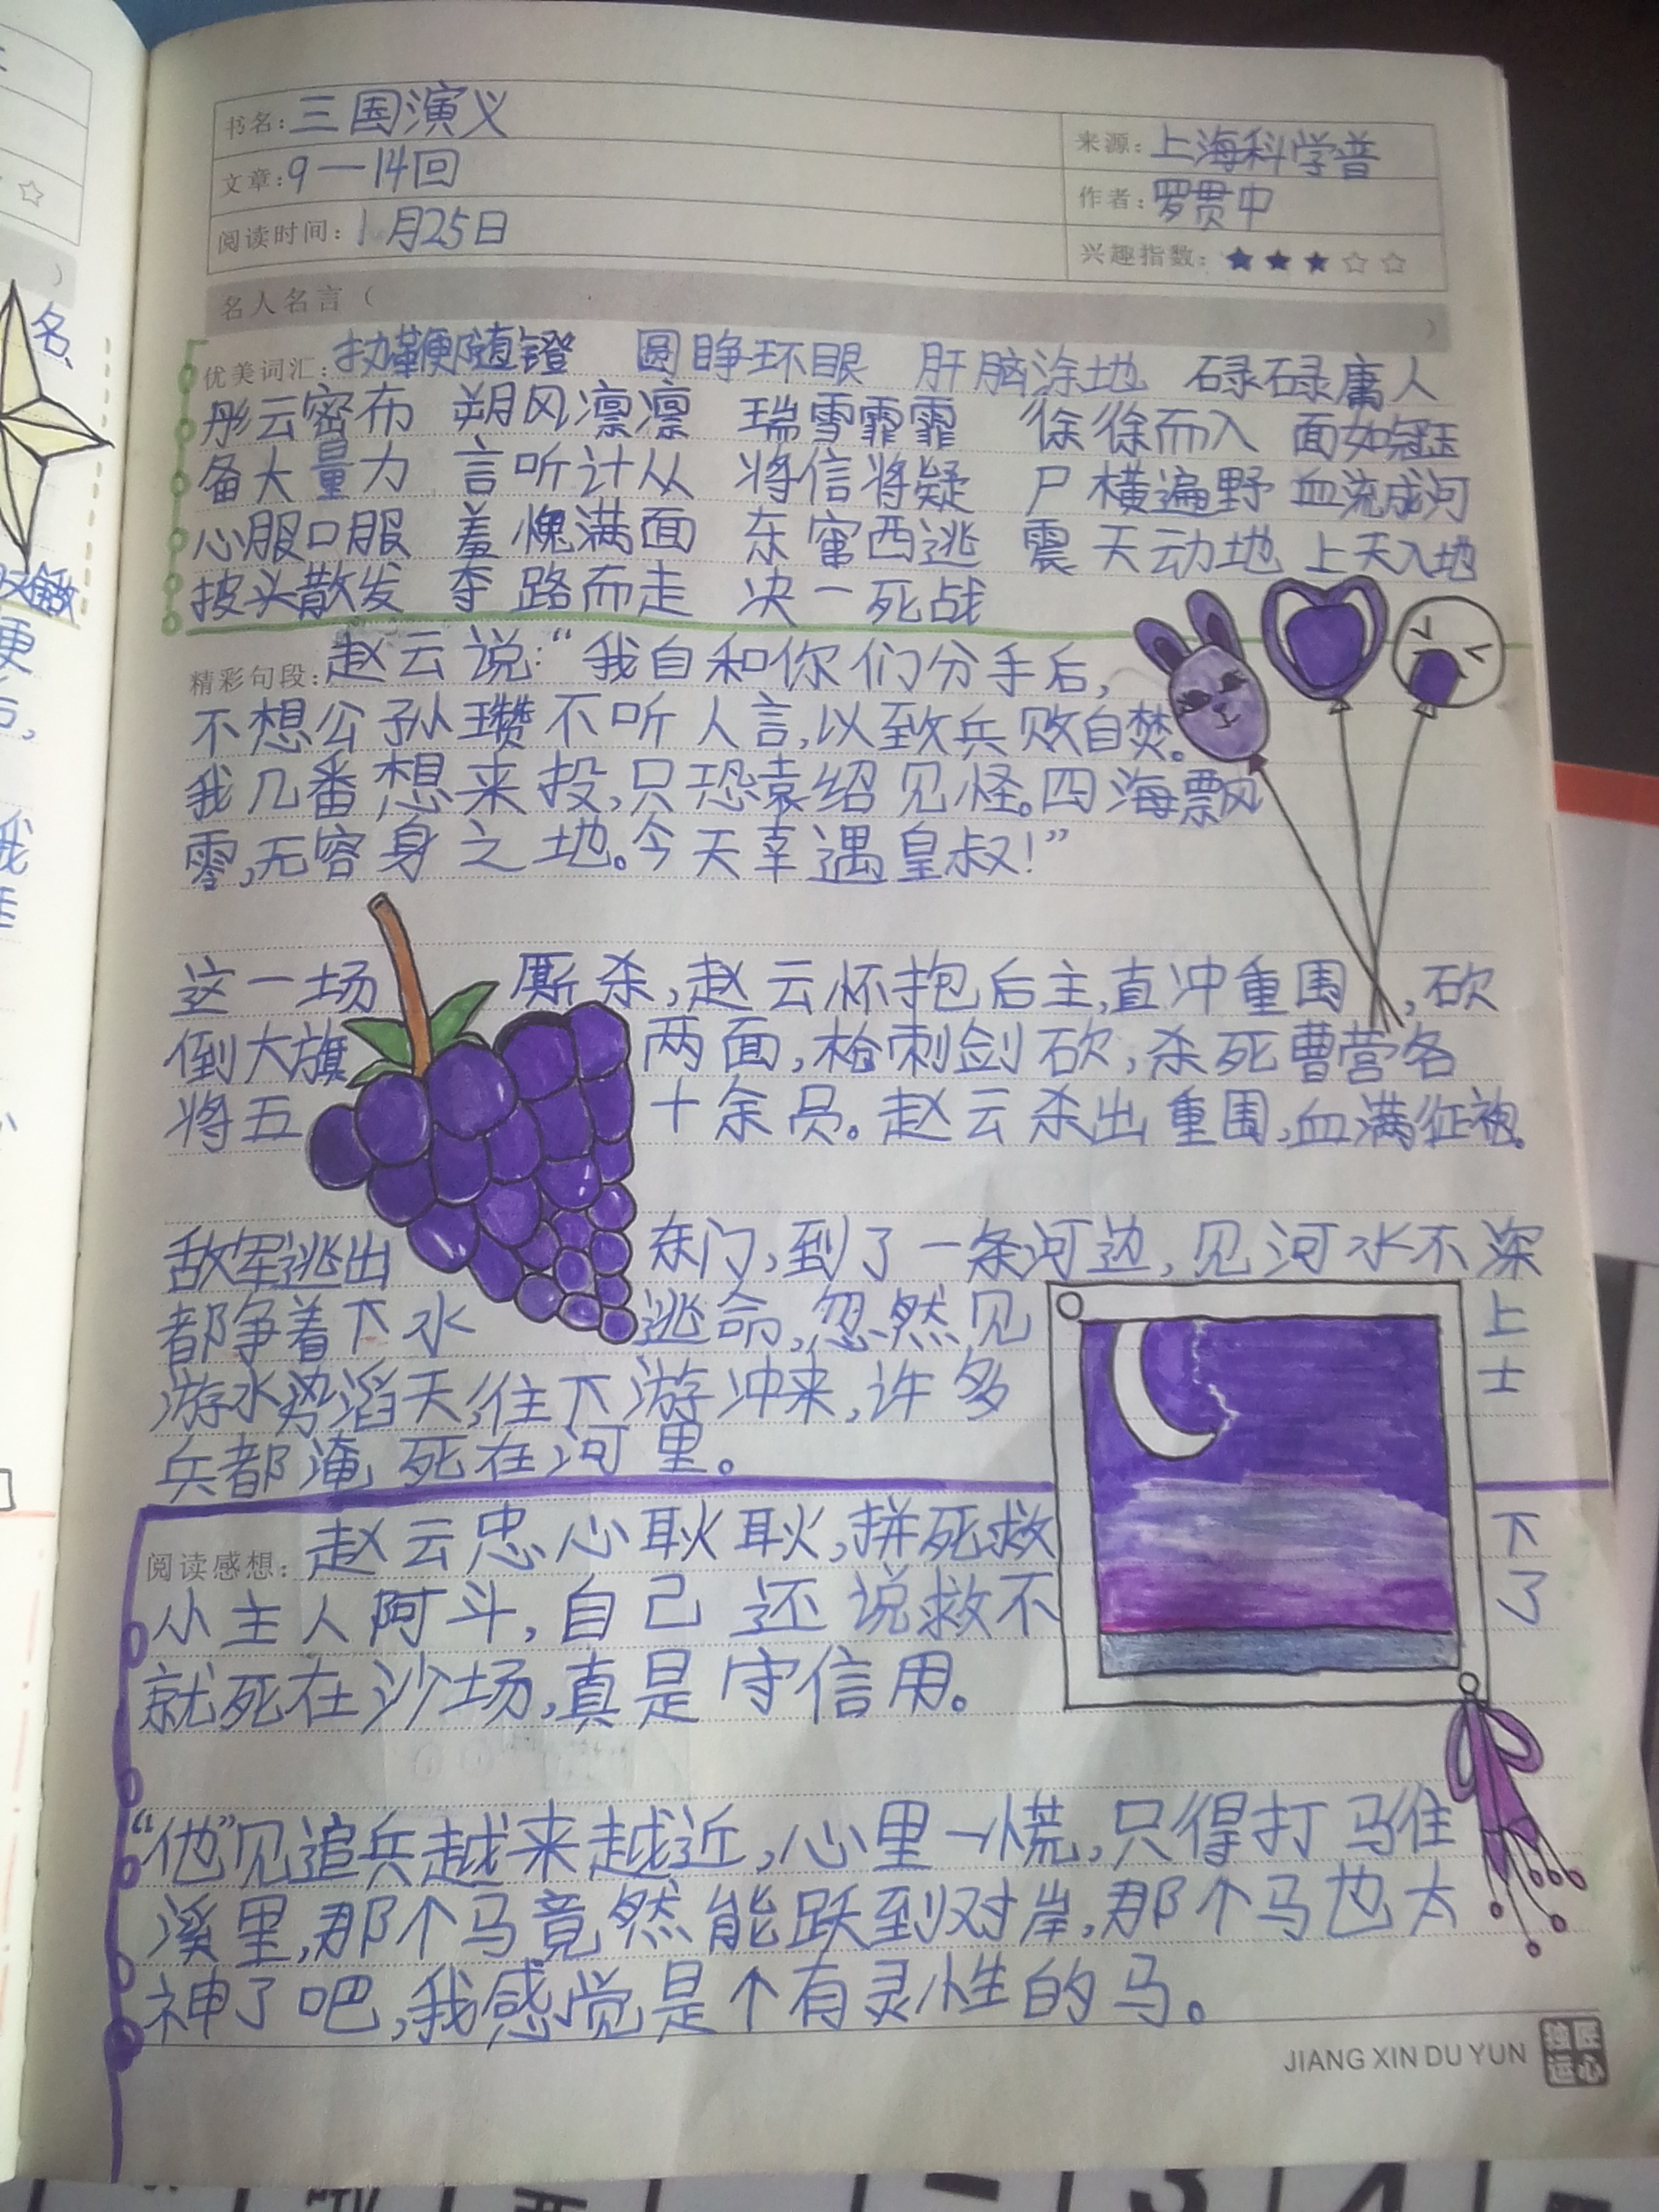 书名：三国演义
来源：上海科学普
文章：9—14回
作者：罗贯中
阅读时间：1月25日
兴趣指数：★★★☆☆
名人名言（ ）
优美词汇：执鞭随镫 圆睁环眼 肝脑涂地 碌碌庸人
彤云密布 朔风凛凛 瑞雪霏霏 徐徐而入 面如冠玉
备大量力 言听计从 将信将疑 尸横遍野 血流成河
心服口服 羞愧满面 东窜西逃 震天动地 上天入地
披头散发 夺路而走 决一死战
精彩句段：赵云说：“我自和你们分手后，
不想公孙瓒不听人言，以致兵败自焚。
我几番想来投，只恐袁绍见怪。四海飘
零，无容身之地。今天幸遇皇叔！”
这一场厮杀，赵云怀抱后主，直冲重围，砍
倒大旗两面，枪刺剑砍，杀死曹营名
将五十余员。赵云杀出重围，血满征袍。
敌军逃出东门，到了一条河边，见河水不深
都争着下水逃命，忽然见上
游水势滔天，往下游冲来，许多士
兵都淹死在河里。
阅读感想：赵云忠心耿耿，拼死救下
小主人阿斗，自己还说救不了
就死在沙场，真是守信用。
“他”见追兵越来越近，心里一慌，只得打马往
溪里，那个马竟然能跃到对岸，那个马也太
神了吧，我感觉是个有灵性的马。
JIANG XIN DU YUN
独匠
运心
名、
更
我